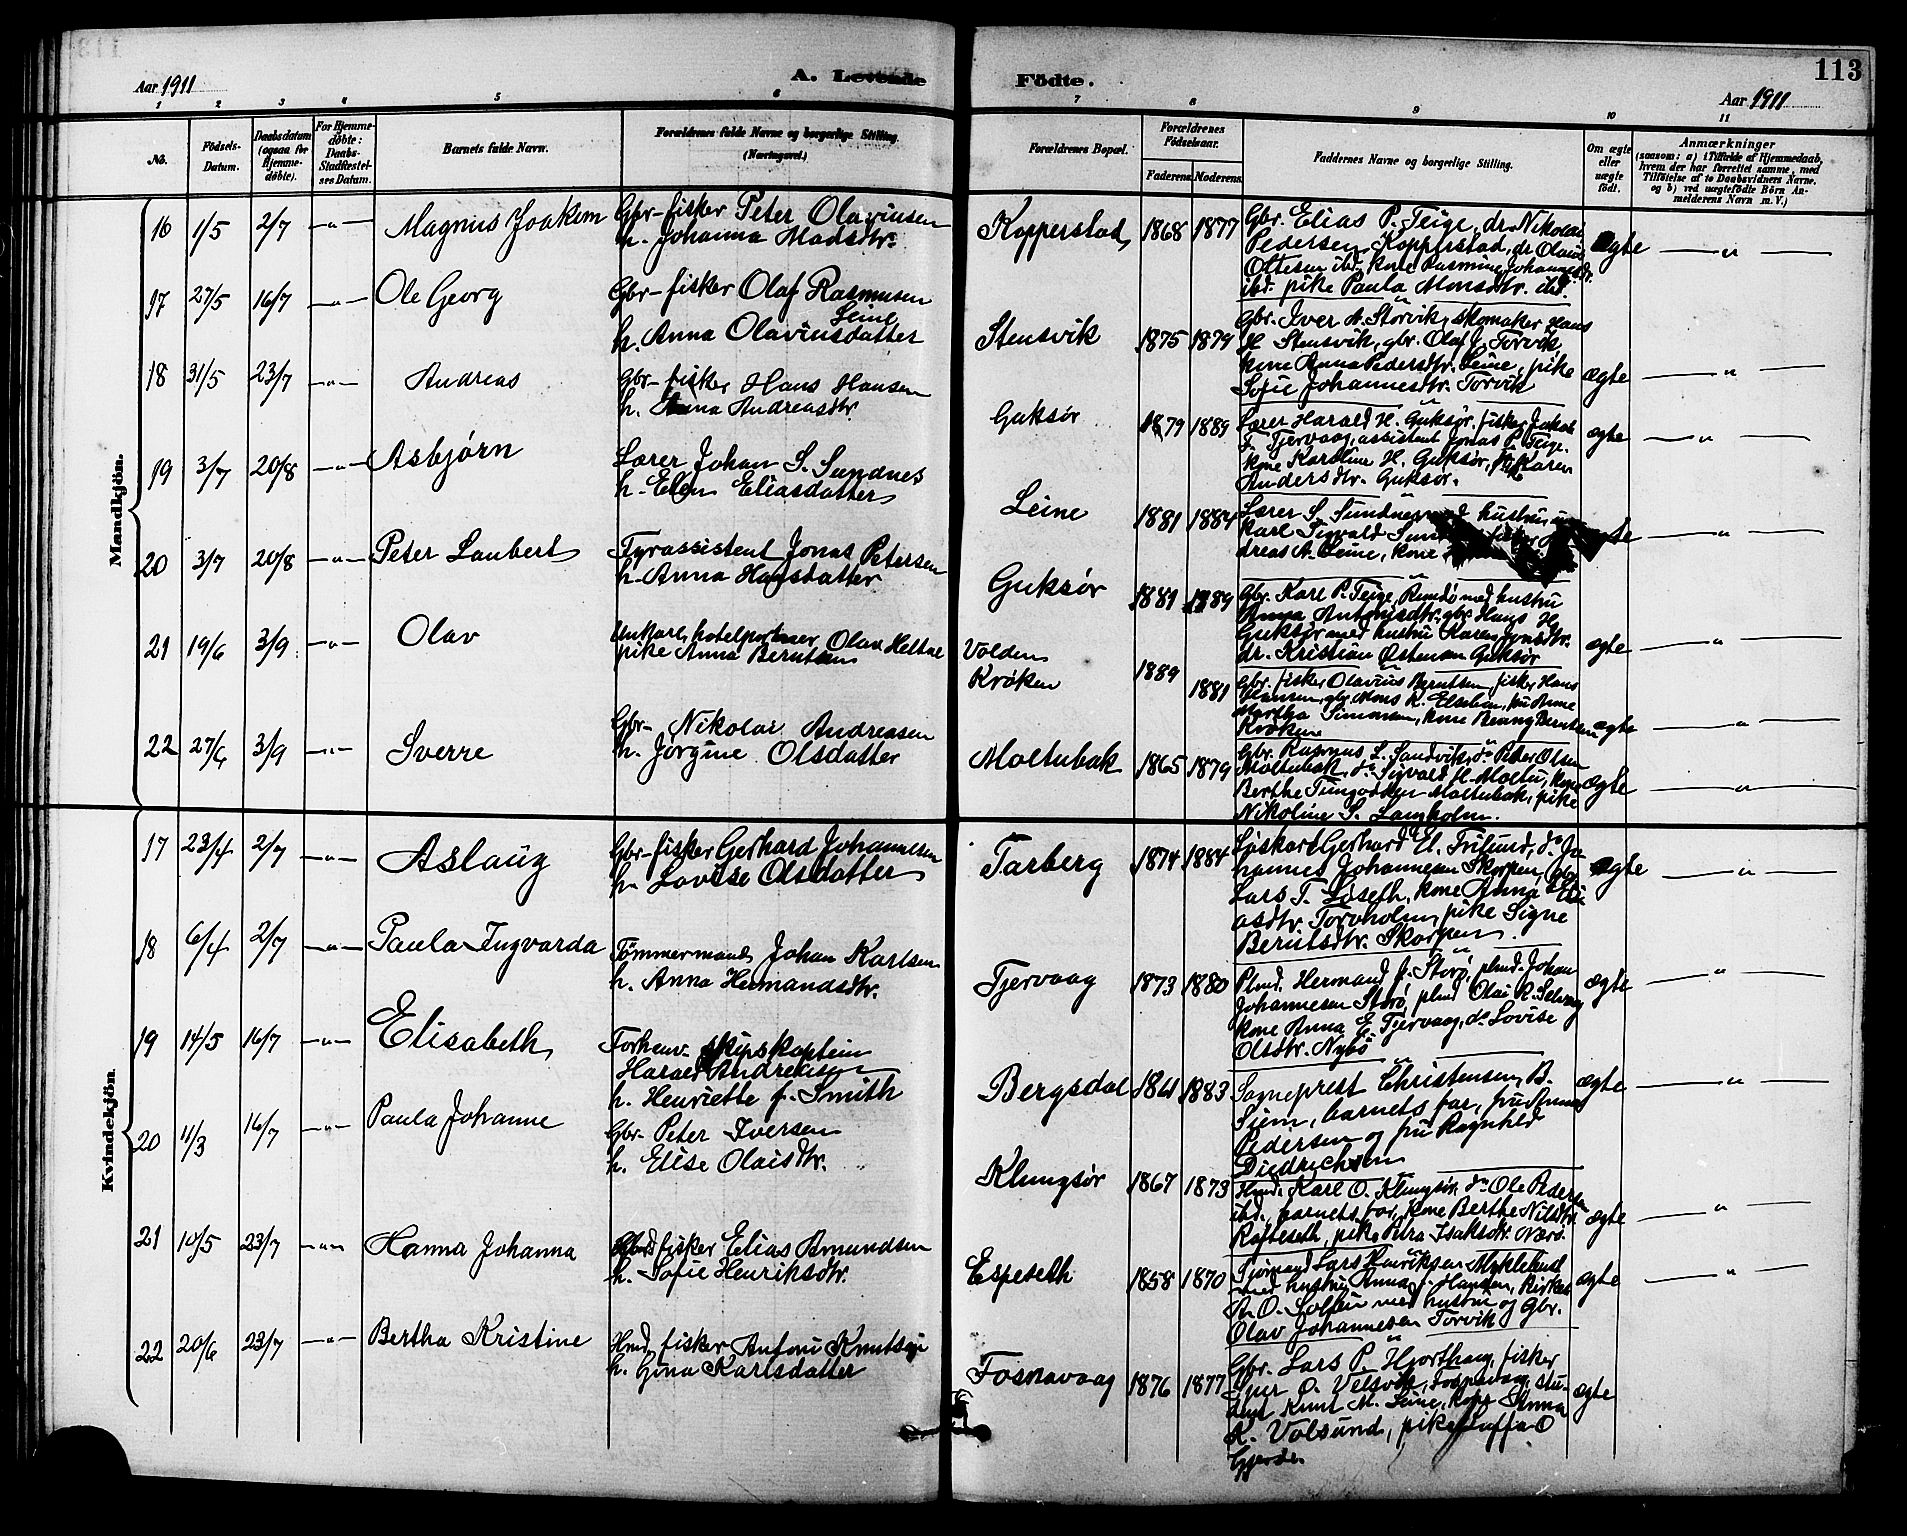 113
Aar 1911
A. Levende
Födte.
Aar 1911
1 2 3 4 5 6 7 8 9 10 11
No.
Födsels-
Datum.
Daabsdatum
(ogsaa for
Hjemme-
döbte).
For Hjemme-
döbte:
Daabs-
Stadfæstel-
ses Datum.
Barnets fulde Navn.
Forældrenes fulde Navne og borgerlige Stilling.
(Næringsvei.)
Forældrenes Bopæl.
Forældrenes
Födselsaar.
Faderens. Moderens.
Faddernes Navne og borgerlige Stilling.
Om ægte
eller
uægte
født.
Anmærkninger
(saasom: a) i Tilfælde af Hjemmedaab,
hvem der har forrettet samme, med
Tilføielse af to Daabsvidners Navne,
og b) ved uægtefødte Börn An-
melderens Navn m. V.)
Mandkjön.
16 1/5 2/7 -"- Magnus Joakim
Gbr-fisker Peter Olaviusen
h. Johanna Madsdtr.
Kopperstad 1868 1877
Gbr. Elias P. Teige, dr. Nikolai
Pedersen Kopperstad, dr Olaus
Ottesen ibd. kone Rasmine Johannesdr.
ibd. pike Paula Monsdtr. ibd.
Ægte — " —
17 27/5 16/7 -"- Ole Georg
Gbr-fisker Olaf Rasmusen
Leine
h. Anna Olaviusdatter
Stensvik 1875 1879
Gbr. Iver A. Storvik, skomaker Hans
H. Stensvik, gbr. Olaf J. Torvik
kone Anna Pedersdtr. Leine, pike
Sofie Johannesdtr. Torvik
ægte — " —
18 31/5 23/7 -"- Andreas
Gbr-fisker Hans Hansen
h. Anna Andreasdtr.
Guksør 1879 1889
Lærer Harald H. Guksør, fisker Jakob
F. Tjervaag, assistent Jonas P. Teige.
kone Karoline H. Guksør, pike Karen
Andersdtr. Guksør.
ægte — " —
19 3/7 20/8 -"- Asbjørn
Lærer Johan S. Sundnes
h. Elen Eliasdatter
Leine 1881 1884
Lærer S. Sundnes med hustru,
Karl Sigvald
dreas A. Leine, kone
— " —
20 3/7 20/8 -"- Peter Laubert
Fyrassistent Jonas Petersen
h. Anna Hansdatter
Guksør 1881 1889
Gbr. Karl P. Teige, Rundø med hustru
Anna Antonisdtr. gbr. Hans H.
Guksør med hustru Karen Jonsdtr.
dr. Kristian Østensen Guksør
ægte — " —
21 19/6 3/9 -"- Olav
Unkarl, hotelportner Olav Heltne
pike Anna Berntsen
Volden
Krøken
1889 1881
Gbr. fisker Olavius Berntsen, fisker Hans
Hansen, gbr. Mons K. Elsebøn, fru Anne
Martha Simonsen, kone Berntsen
Krøken
uægte — " —
22 27/6 3/9 -"- Sverre
Gbr- Nikolai Andreasen
h. Jørgine Olsdatter
Moltubak 1865 1879
Gbr. Rasmus L. Sandvik, do Peder Olsen
Moltubak, do Sigvald H. Moltu, kone
Berthe Moltubak, pike
Nikoline S. Lamholm.
ægte — " —
Kvindekjön.
17 23/4 2/7 -"- Aslaug
Gbr-fisker Gerhard Johannesen
h. Lovise Olsdatter
Tarberg 1874 1884
Løskarl Gerhard El. Frilund, do Jo-
hannes Johannesen Skorpen, gbr
Lars T. Løseth, kone Anna Eli-
asdtr. Torvholm, pike Signe
Berntsdtr. Skorpen.
ægte — " —
18 6/4 2/7 -"- Paula Ingvarda
Tømmermand Johan Karlsen
h. Anna Hermandsdtr.
Tjervaag 1873 1880
Plmd. Hermand J. Storø, plmd. Johan
Johannesen Storø, plmd Olai R. Selvaag
kone Anna E. Tjervaag, do Lovise
Olsdtr. Nybø
ægte — " —
19 14/5 16/7 -"- Elisabeth
Forhenv. skipskaptein
Harald Andreasen
h. Henriette f. Smith
Bergsdal 1861 1883
Sogneprest Christensen, B.
Siem, barnets far, fru Anna
Pedersen og fru Ragnhild
Diedrichsen
ægte — " —
20 11/3 16/7 -"- Paula Johanne
Gbr- Peter Iversen
h. Elise Olaisdtr.
Klungsør 1867 1873
Hmd. Karl O. Klungsør, do Ole Pedersen
ibd. barnets far, kone Berthe Nilsdtr.
Røfteseth, pike Petra Isaksdtr. Nærø.
ægte — " —
21 10/5 23/7 -"- Hanna Johanna
fisker Elias Amundsen
h. Sofie Henriksdtr.
Espeseth 1858 1870
Sjømand Lars Henriksen Myklebust
med hustru Anna J. Hansen, Kirkes.
A. O. med hustru og Gbr.
Olav Johannesen Torvik
ægte — " —
22 20/6 23/7 -"- Bertha Kristine
Hmd. fisker Antoni Knutsen
h. Gina Karlsdatter
Fosnavaag 1876 1877
Gbr. Lars P. Hjorthaug, fisker
O. Velsvik, Fosnavaag, stu-
dent Knut M. Leine, kone Anna
K. Volsund, pike O
Gjerde.
ægte